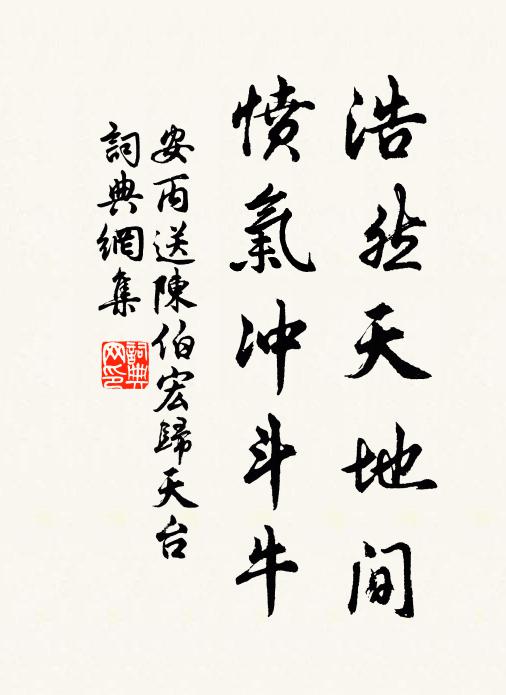 浩然天地间
憤氣冲斗牛
安丙送陳伯宏歸天台
詞典網集
詞典网印